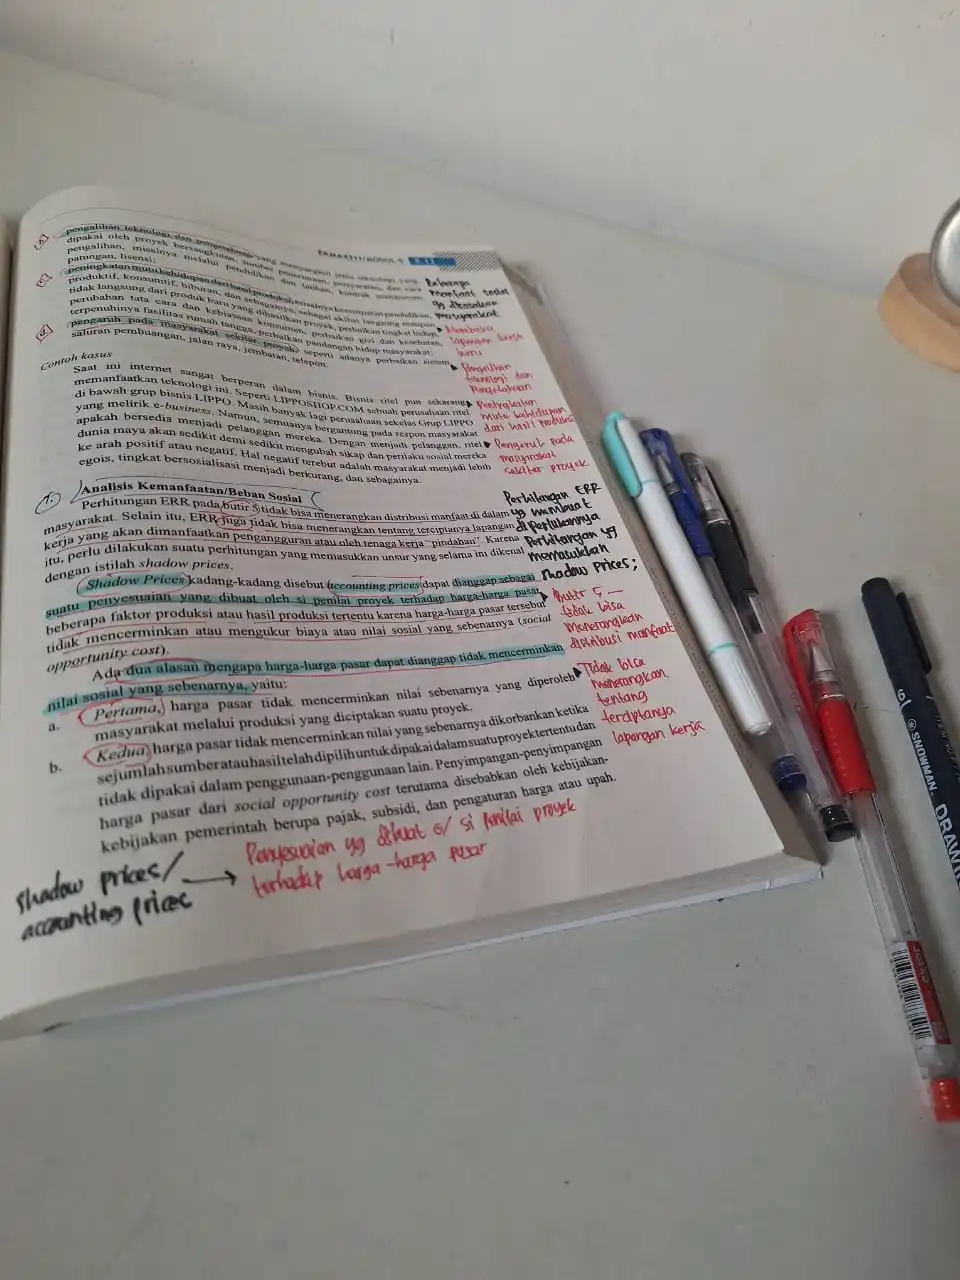 EKMA4311/MODUL 9
pengalihan teknologi dan pengetahuan yang menyangkut jenis teknologi yang
dipakai oleh proyek bersangkutan, sumber penerimaan, persyaratan, dan cara
pengalihan, misalnya melalui pendidikan dan latihan, kontrak manajemen,
patungan, lisensi;
peningkatan mutu kehidupan dari hasil produksi, misalnya kesempatan pendidikan,
produktif, konsumtif, hiburan, dan sebagainya, sebagai akibat langsung maupun
tidak langsung dari produk baru yang dihasilkan proyek, perbaikan tingkat hidup,
perubahan tata cara dan kebiasaan konsumen, perbaikan gizi dan kesehatan,
terpenuhinya fasilitas rumah tangga, perbaikan pandangan hidup masyarakat.
d.
pengaruh pada masyarakat sekitar proyek, seperti adanya perbaikan sistem
saluran pembuangan, jalan raya, jembatan, telepon.
Contoh kasus
Saat ini internet sangat berperan dalam bisnis. Bisnis ritel pun sekarang
memanfaatkan teknologi ini. Seperti LIPPOSHOP.COM sebuah perusahaan ritel
di bawah grup bisnis LIPPO. Masih banyak lagi perusahaan sekelas Grup LIPPO
yang melirik e-business. Namun, semuanya bergantung pada respon masyarakat
apakah bersedia menjadi pelanggan mereka. Dengan menjadi pelanggan, ritel
dunia maya akan sedikit demi sedikit mengubah sikap dan perilaku sosial mereka
ke arah positif atau negatif. Hal negatif terebut adalah masyarakat menjadi lebih
egois, tingkat bersosialisasi menjadi berkurang, dan sebagainya.
7. Analisis Kemanfaatan/Beban Sosial
Perhitungan ERR pada butir 5 tidak bisa menerangkan distribusi manfaat di dalam
masyarakat. Selain itu, ERR juga tidak bisa menerangkan tentang terciptanya lapangan
kerja yang akan dimanfaatkan pengangguran atau oleh tenaga kerja "pindahan". Karena
itu, perlu dilakukan suatu perhitungan yang memasukkan unsur yang selama ini dikenal
dengan istilah shadow prices.
Shadow Prices kadang-kadang disebut accounting prices dapat dianggap sebagai
suatu penyesuaian yang dibuat oleh si penilai proyek terhadap harga-harga pasar
beberapa faktor produksi atau hasil produksi tertentu karena harga-harga pasar tersebut
tidak mencerminkan atau mengukur biaya atau nilai sosial yang sebenarnya (social
opportunity cost).
Ada dua alasan mengapa harga-harga pasar dapat dianggap tidak mencerminkan
nilai sosial yang sebenarnya, yaitu:
a. Pertama, harga pasar tidak mencerminkan nilai sebenarnya yang diperoleh
masyarakat melalui produksi yang diciptakan suatu proyek.
b. Kedua, harga pasar tidak mencerminkan nilai yang sebenarnya dikorbankan ketika
sejumlah sumber atau hasil telah dipilih untuk dipakai dalam suatu proyek tertentu dan
tidak dipakai dalam penggunaan-penggunaan lain. Penyimpangan-penyimpangan
harga pasar dari social opportunity cost terutama disebabkan oleh kebijakan-
kebijakan pemerintah berupa pajak, subsidi, dan pengaturan harga atau upah.
Beberapa
manfaat sosial
yg dirasakan
masyarakat
Membuka
lapangan kerja
baru
Pengalihan
teknologi dan
Pengetahuan
Peningkatan
mutu kehidupan
dari hasil produksi
Pengaruh pada
masyarakat
sekitar proyek
Perhitungan ERR
yg membuat
diperlukannya
Perhitungan yg
memasukkan
shadow prices;
Butir 5
tidak bisa
menerangkan
distribusi manfaat
Tidak bisa
menerangkan
tentang
terciptanya
lapangan kerja
shadow prices/
accounting prices
Penyesuaian yg dibuat o/ si penilai proyek
terhadap harga-harga pasar
SNOWMAN.